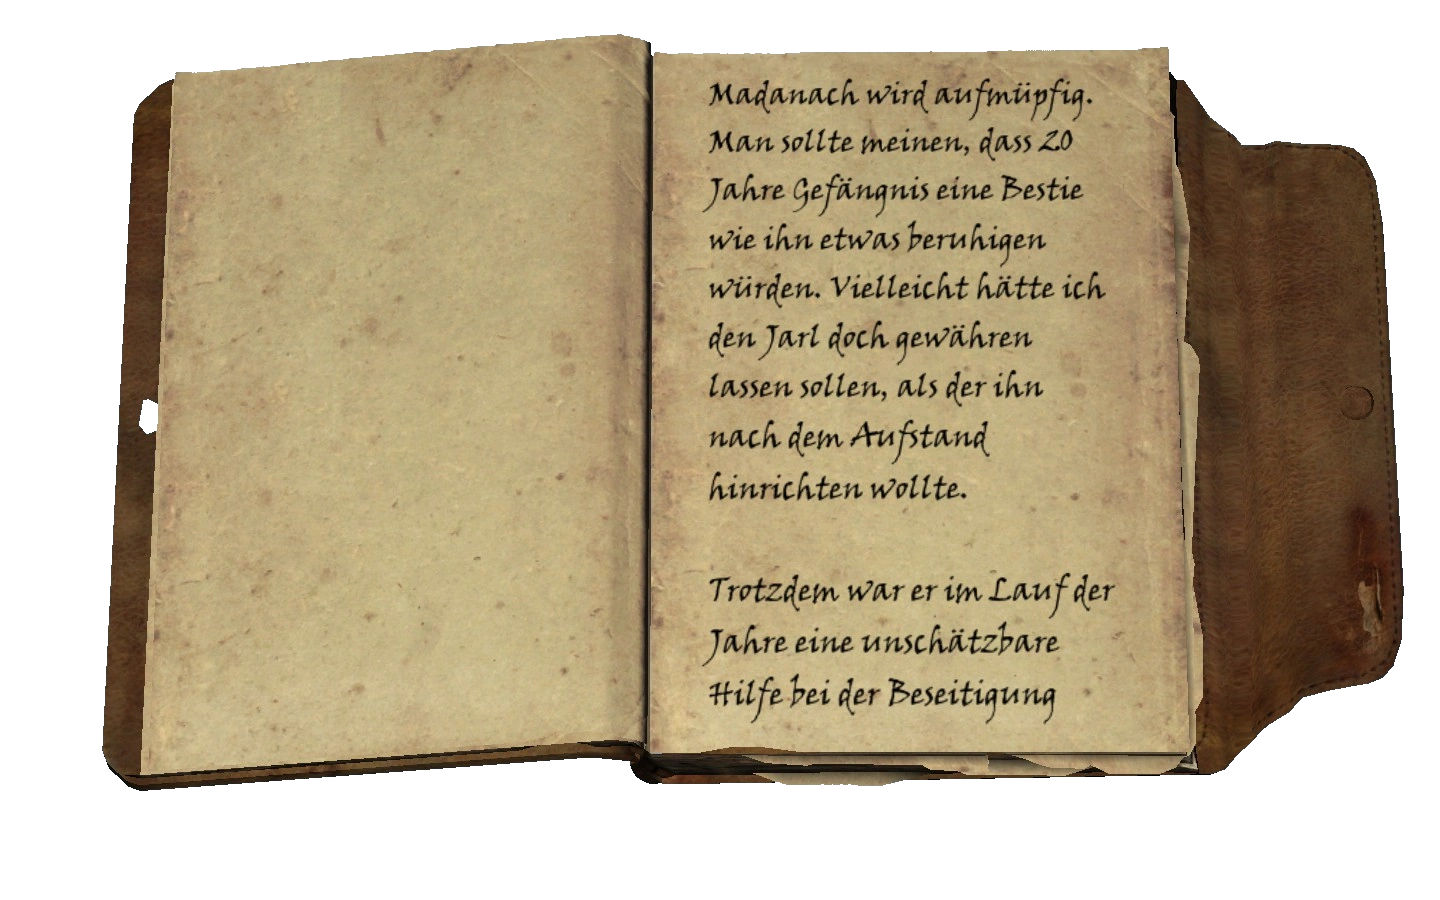 Madanach wird aufmüpfig.
Man sollte meinen, dass 20
Jahre Gefängnis eine Bestie
wie ihn etwas beruhigen
würden. Vielleicht hätte ich
den Jarl doch gewähren
lassen sollen, als der ihn
nach dem Aufstand
hinrichten wollte.
Trotzdem war er im Lauf der
Jahre eine unschätzbare
Hilfe bei der Beseitigung